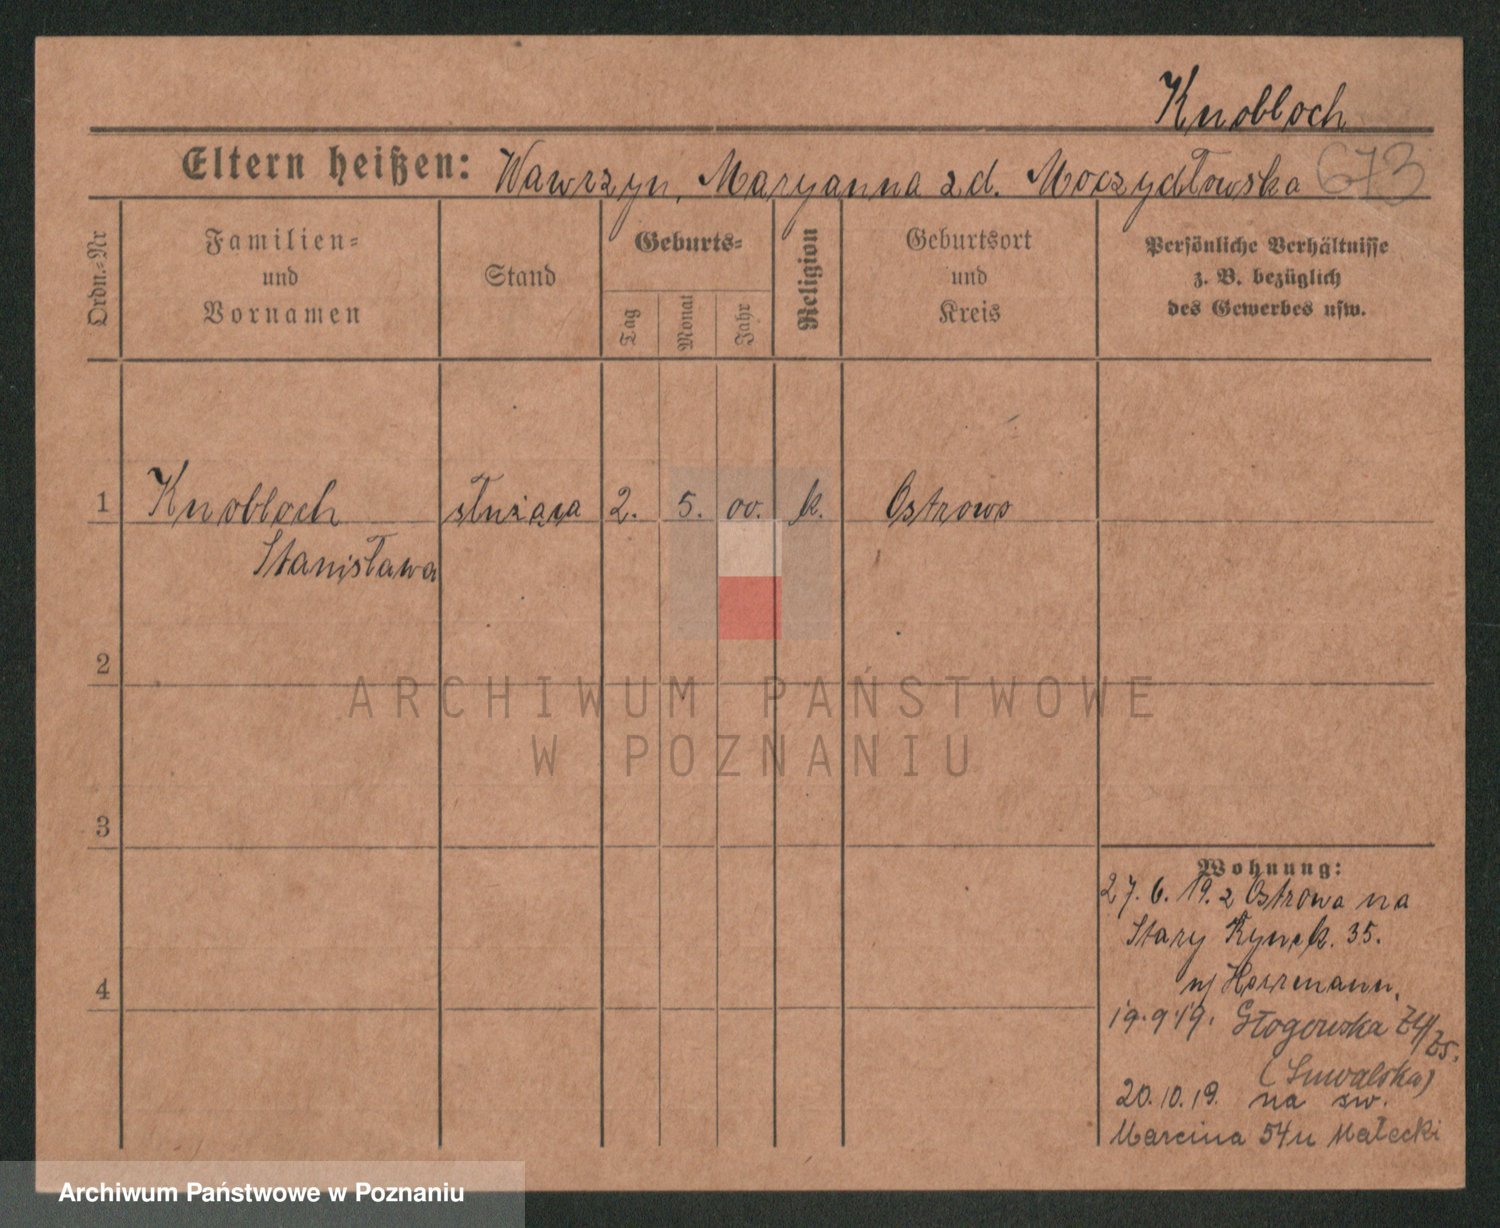 Knobloch
Eltern heißen: Wawrzyn, Maryanna z d. Moczydłowska 673
Ordn.-Nr
Familien-
und
Vornamen
Stand
Geburts-
Tag
Monat
Jahr
Religion
Geburtsort
und
Kreis
Persönliche Verhältnisse
z. B. bezüglich
des Gewerbes usw.
1 Knobloch służąca 2. 5. 00. k. Ostrowo
Stanisława
2
ARCHIWUM PAŃSTWOWE
W POZNANIU
3
Wohnung:
27. 6. 19. z Ostrowa na
Stary Rynek. 35.
4
u/ Herrmann.
19.9.19. Głogowska
(Suwalska)
20.10.19. na św.
Marcina 54 u Małecki
Archiwum Państwowe w Poznaniu